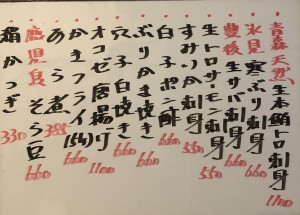 青森 天然 生本鮪トロ刺身 1100
氷見 寒ぶり刺身 660
豊後 生サバ刺身 660
生トロサーモン刺身 550
すみいか刺身 550
白子ポン酢 660
ぶりかま焼き 660
穴子白焼き 660
オコゼ唐揚げ 1100
かきフライ 660
あら煮
鹿児島 そら豆 1100
絹かつぎ 330